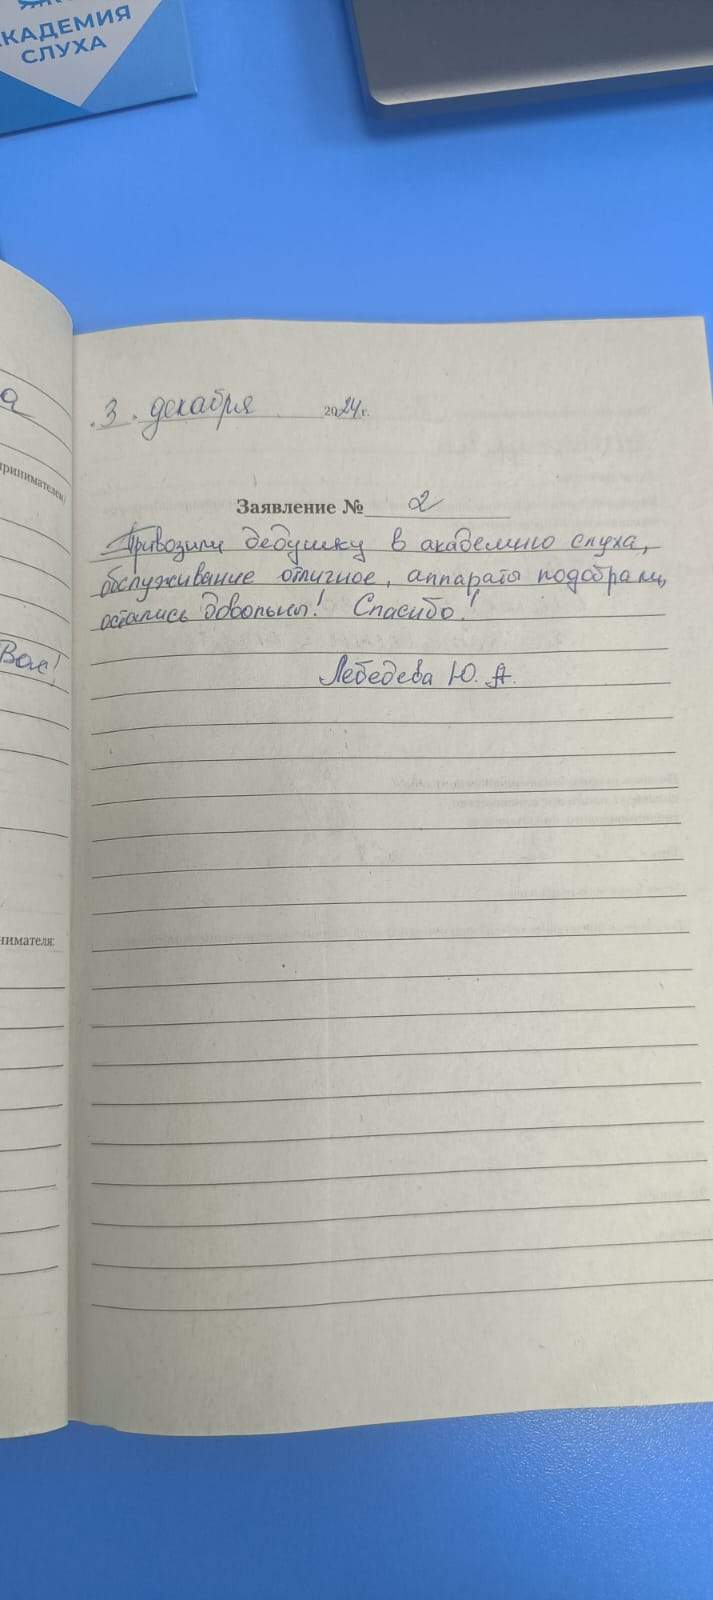 КАДЕМИЯ
СЛУХА
а
принимателем)
Вам!
нимателя:
3. декабря 2024г.
Заявление № 2
Привозили дедушку в академию слуха,
обслуживание отличное, аппараты подобрали,
остались довольны! Спасибо!
Лебедева Ю. А.